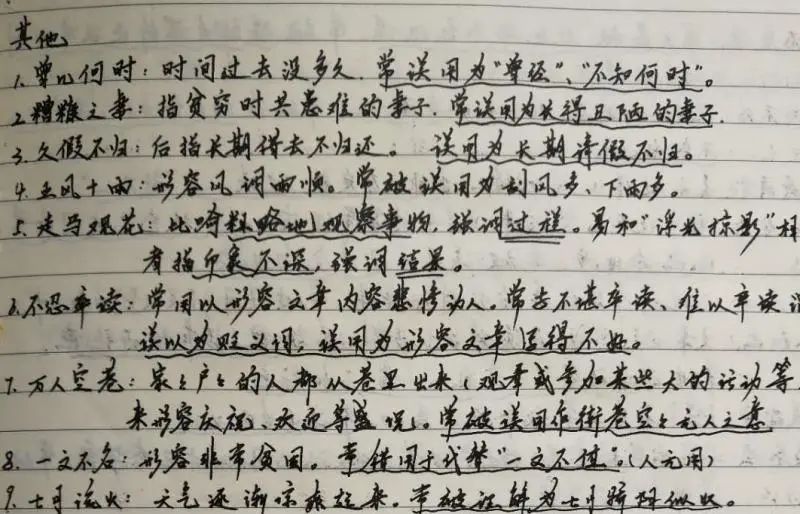 其他
1. 曾几何时：时间过去没多久. 常误用为"曾经"、"不知何时"。
2. 糟糠之妻：指贫穷时共患难的妻子. 常误用为长得丑陋的妻子.
3. 久假不归：后指长期借去不归还。 误用为长期请假不归。
4. 五风十雨：形容风调雨顺。常被误用为刮风多、下雨多。
5. 走马观花：比喻粗略地观察事物, 强调过程。易和"浮光掠影"相
者指印象不深, 强调结果。
6. 不忍卒读：常用以形容文章内容悲惨动人。常与不堪卒读、难以卒读混
误以为贬义词, 误用为形容文章写得不好。
7. 万人空巷：家家户户的人都从巷里出来（观看或参加某些大的活动等
来形容庆祝、欢迎等盛况。常被误用作街巷空空无人之意
8. 一文不名：形容非常贫困。常错用于代替"一文不值"。(人元用)
9. 七月流火：天气逐渐凉爽起来。常被误解为七月骄阳似火。